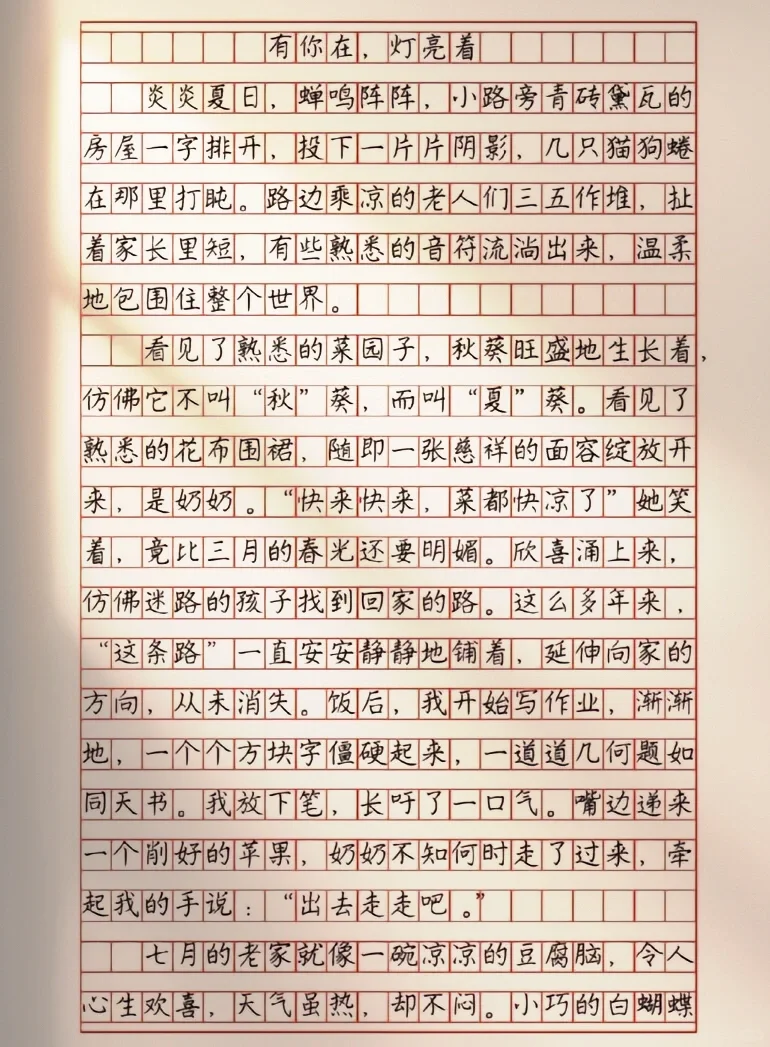 有你在，灯亮着
炎炎夏日，蝉鸣阵阵，小路旁青砖黛瓦的
房屋一字排开，投下一片片阴影，几只猫狗蜷
在那里打盹。路边乘凉的老人们三五作堆，扯
着家长里短，有些熟悉的音符流淌出来，温柔
地包围住整个世界。
看见了熟悉的菜园子，秋葵旺盛地生长着，
仿佛它不叫“秋”葵，而叫“夏”葵。看见了
熟悉的花布围裙，随即一张慈祥的面容绽放开
来，是奶奶。“快来快来，菜都快凉了”她笑
着，竟比三月的春光还要明媚。欣喜涌上来，
仿佛迷路的孩子找到回家的路。这么多年来，
“这条路”一直安安静静地铺着，延伸向家的
方向，从未消失。饭后，我开始写作业，渐渐
地，一个个方块字僵硬起来，一道道几何题如
同天书。我放下笔，长吁了一口气。嘴边递来
一个削好的苹果，奶奶不知何时走了过来，牵
起我的手说：“出去走走吧。”
七月的老家就像一碗凉凉的豆腐脑，令人
心生欢喜，天气虽热，却不闷。小巧的白蝴蝶